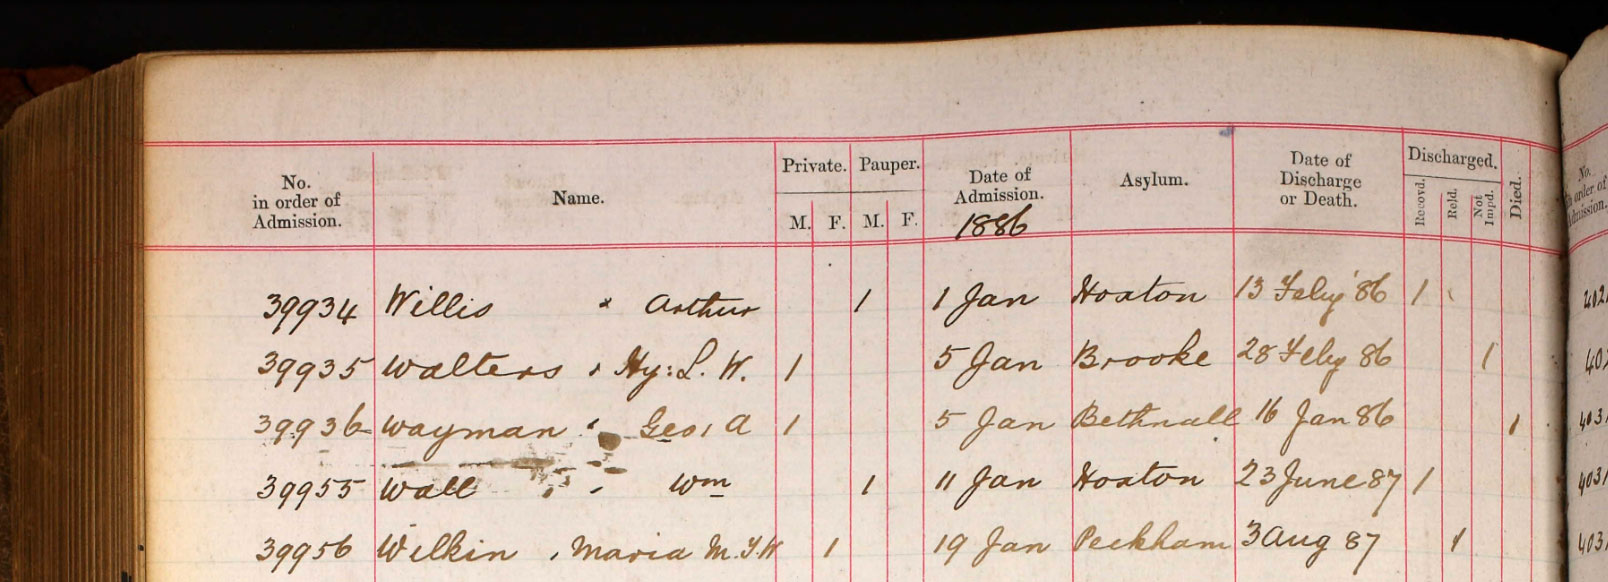 No. in order of Admission. Name. Private. M. F. Pauper. M. F. Date of Admission. 1886 Asylum. Date of Discharge or Death. Discharged. Recovd. Reld. Not Impd. Died. No. in order of Admission.
39934 Willis Arthur 1 1 Jan Hoxton 13 Feby '86 1
39935 Walters Hy: L. W. 1 5 Jan Brooke 28 Feby 86 1
39936 Wayman Geo: A 1 5 Jan Bethnall 16 Jan 86 1
39955 Wall Wm 1 11 Jan Hoxton 23 June 87 1
39956 Wilkin Maria M. 1 19 Jan Peckham 3 Aug 87 1